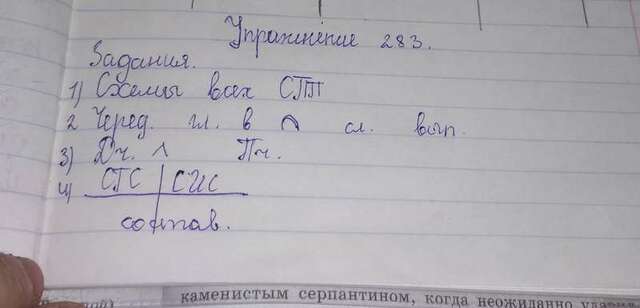 Упражнение 283.
Задания.
1) Схемы всех СПП
2 Черед. гл. в ⌒ сл. вып.
3) Дч. ^ Пч.
4) СГС | СИС
состав.
каменистым серпантином, когда неожиданно ударил